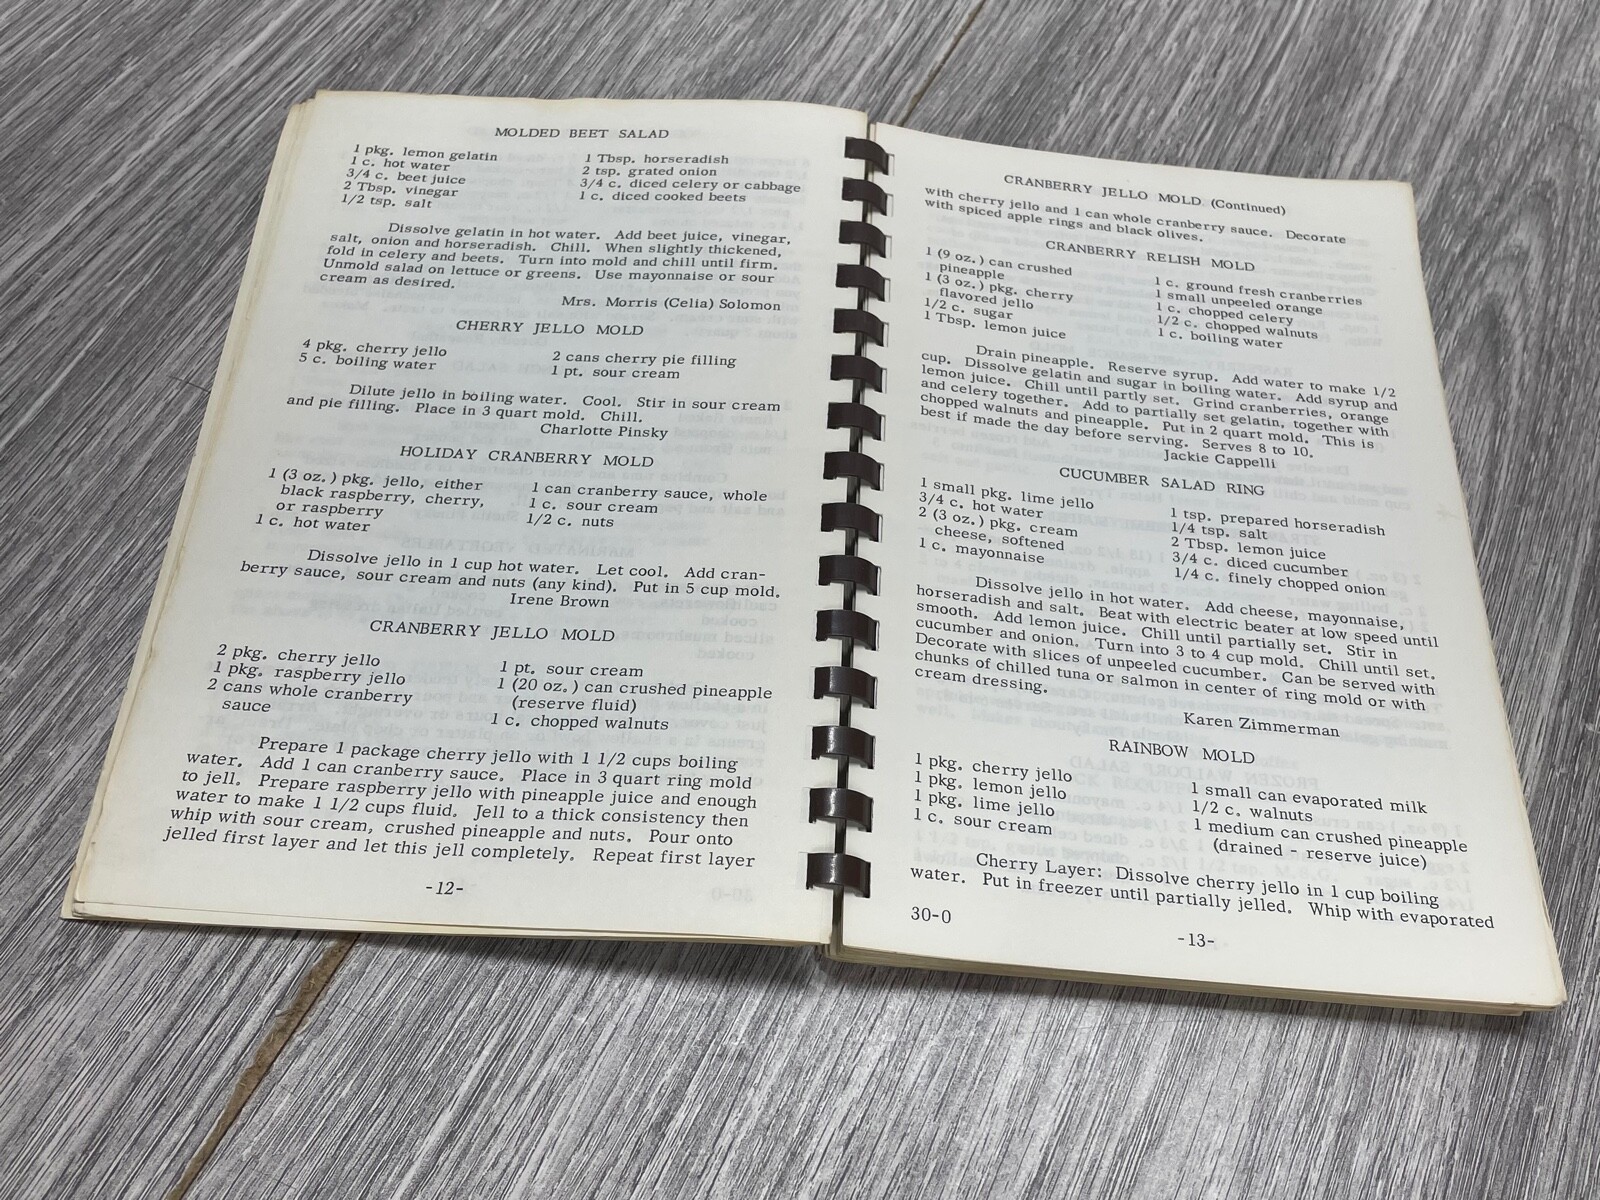 MOLDED BEET SALAD
1 pkg. lemon gelatin
1 c. hot water
3/4 c. beet juice
2 Tbsp. vinegar
1/2 tsp. salt
1 Tbsp. horseradish
2 tsp. grated onion
3/4 c. diced celery or cabbage
1 c. diced cooked beets
Dissolve gelatin in hot water. Add beet juice, vinegar,
salt, onion and horseradish. Chill. When slightly thickened,
fold in celery and beets. Turn into mold and chill until firm.
Unmold salad on lettuce or greens. Use mayonnaise or sour
cream as desired.
Mrs. Morris (Celia) Solomon
CHERRY JELLO MOLD
4 pkg. cherry jello
5 c. boiling water
2 cans cherry pie filling
1 pt. sour cream
Dilute jello in boiling water. Cool. Stir in sour cream
and pie filling. Place in 3 quart mold. Chill.
Charlotte Pinsky
HOLIDAY CRANBERRY MOLD
1 (3 oz.) pkg. jello, either
black raspberry, cherry,
or raspberry
1 c. hot water
1 can cranberry sauce, whole
1 c. sour cream
1/2 c. nuts
Dissolve jello in 1 cup hot water. Let cool. Add cran-
berry sauce, sour cream and nuts (any kind). Put in 5 cup mold.
Irene Brown
CRANBERRY JELLO MOLD
2 pkg. cherry jello
1 pkg. raspberry jello
2 cans whole cranberry
sauce
1 pt. sour cream
1 (20 oz.) can crushed pineapple
(reserve fluid)
1 c. chopped walnuts
Prepare 1 package cherry jello with 1 1/2 cups boiling
water. Add 1 can cranberry sauce. Place in 3 quart ring mold
to jell. Prepare raspberry jello with pineapple juice and enough
water to make 1 1/2 cups fluid. Jell to a thick consistency then
whip with sour cream, crushed pineapple and nuts. Pour onto
jelled first layer and let this jell completely. Repeat first layer
-12-
CRANBERRY JELLO MOLD (Continued)
with cherry jello and 1 can whole cranberry sauce. Decorate
with spiced apple rings and black olives.
CRANBERRY RELISH MOLD
1 (9 oz.) can crushed
pineapple
1 (3 oz.) pkg. cherry
flavored jello
1/2 c. sugar
1 Tbsp. lemon juice
1 c. ground fresh cranberries
1 small unpeeled orange
1 c. chopped celery
1/2 c. chopped walnuts
1 c. boiling water
Drain pineapple. Reserve syrup. Add water to make 1/2
cup. Dissolve gelatin and sugar in boiling water. Add syrup and
lemon juice. Chill until partly set. Grind cranberries, orange
and celery together. Add to partially set gelatin, together with
chopped walnuts and pineapple. Put in 2 quart mold. This is
best if made the day before serving. Serves 8 to 10.
Jackie Cappelli
CUCUMBER SALAD RING
1 small pkg. lime jello
3/4 c. hot water
2 (3 oz.) pkg. cream
cheese, softened
1 c. mayonnaise
1 tsp. prepared horseradish
1/4 tsp. salt
2 Tbsp. lemon juice
3/4 c. diced cucumber
1/4 c. finely chopped onion
Dissolve jello in hot water. Add cheese, mayonnaise,
horseradish and salt. Beat with electric beater at low speed until
smooth. Add lemon juice. Chill until partially set. Stir in
cucumber and onion. Turn into 3 to 4 cup mold. Chill until set.
Decorate with slices of unpeeled cucumber. Can be served with
chunks of chilled tuna or salmon in center of ring mold or with
cream dressing.
Karen Zimmerman
RAINBOW MOLD
1 pkg. cherry jello
1 pkg. lemon jello
1 pkg. lime jello
1 c. sour cream
1 small can evaporated milk
1/2 c. walnuts
1 medium can crushed pineapple
(drained - reserve juice)
Cherry Layer: Dissolve cherry jello in 1 cup boiling
water. Put in freezer until partially jelled. Whip with evaporated
30-0
-13-